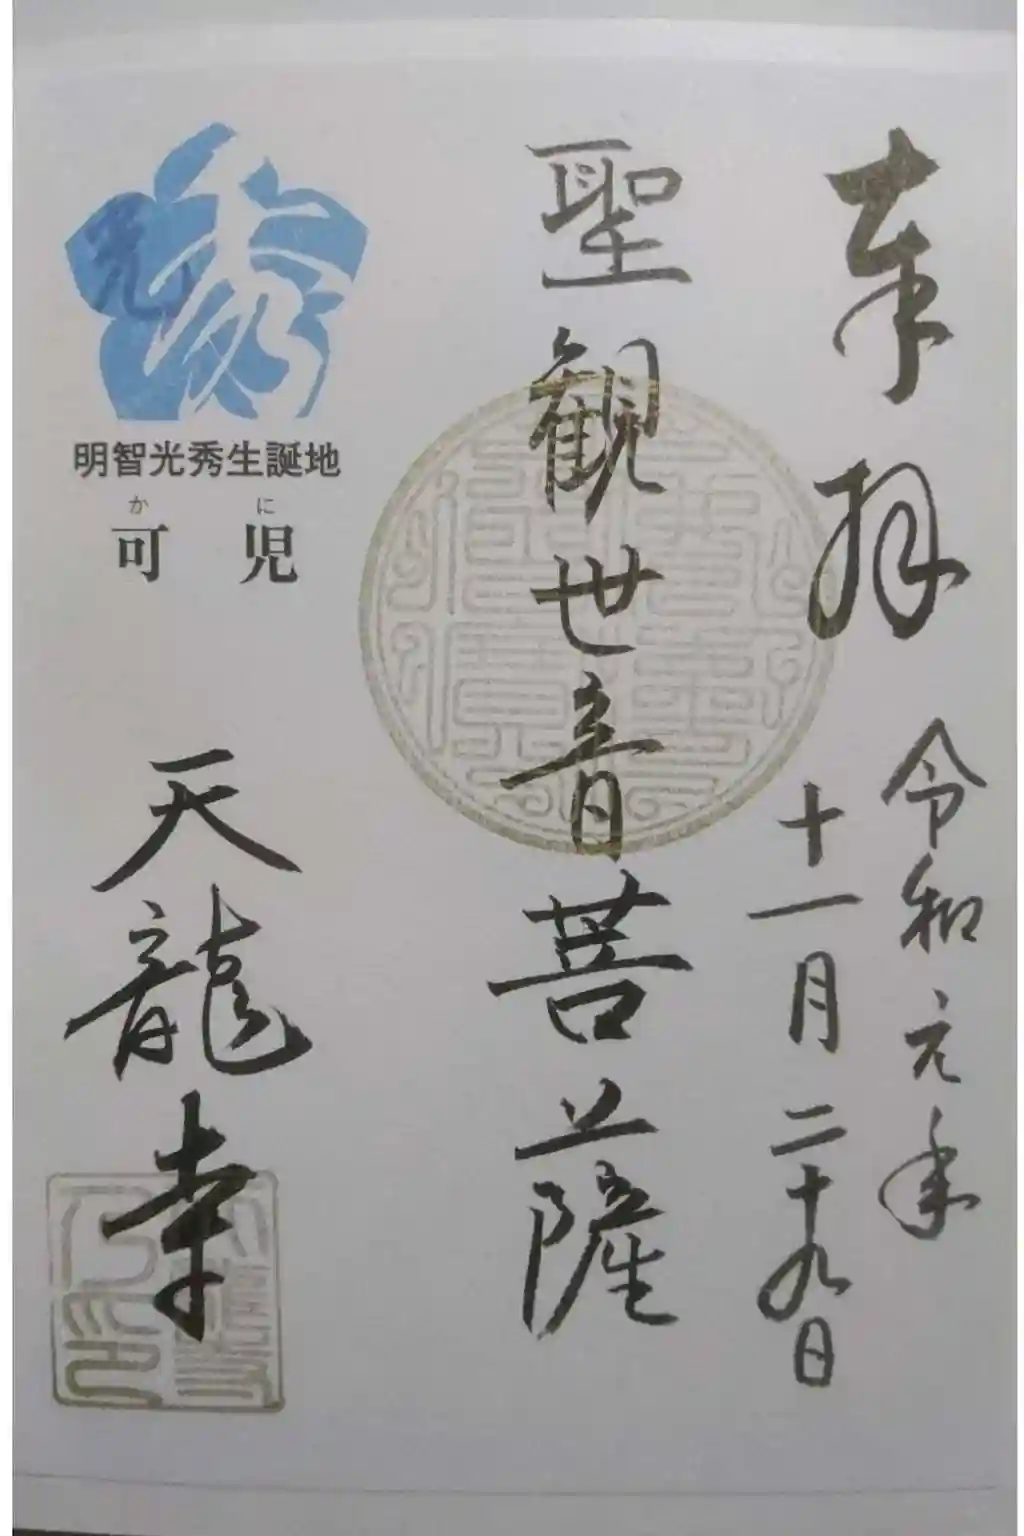 奉拝
令和元年
十一月二十九日
聖観世音菩薩
光秀
明智光秀生誕地
か に
可 児
天龍寺